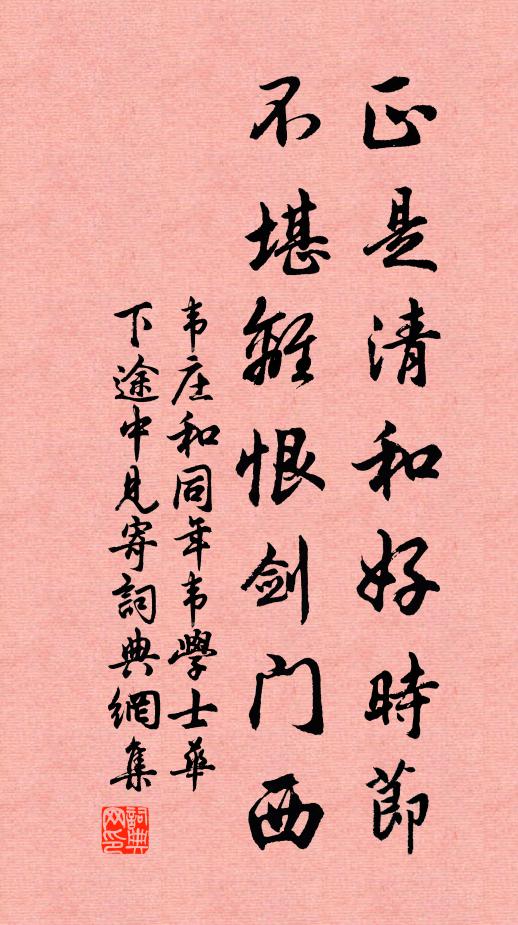 正是清和好時節
不堪離恨剑门西
韦庄和同年韦學士華
下途中見寄詞典網集
詞典
网印